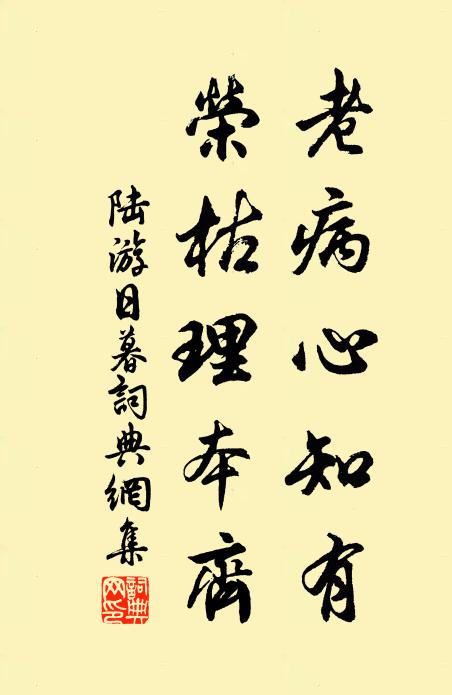 老病心知有
榮枯理本齊
陸游日暮詞典網集
詞典網印